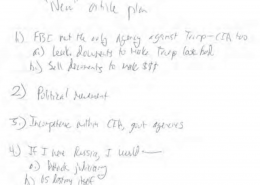 "New" article plan
1) FBI not the only agency against Trump—CIA too
a) Leak documents to make Trump look bad
b) Sell documents to make $$$
2) Political movement
3.) Incompetence within CIA, govt agencies
4.) If I were Russia, I would—
a)
b) US destroy itself